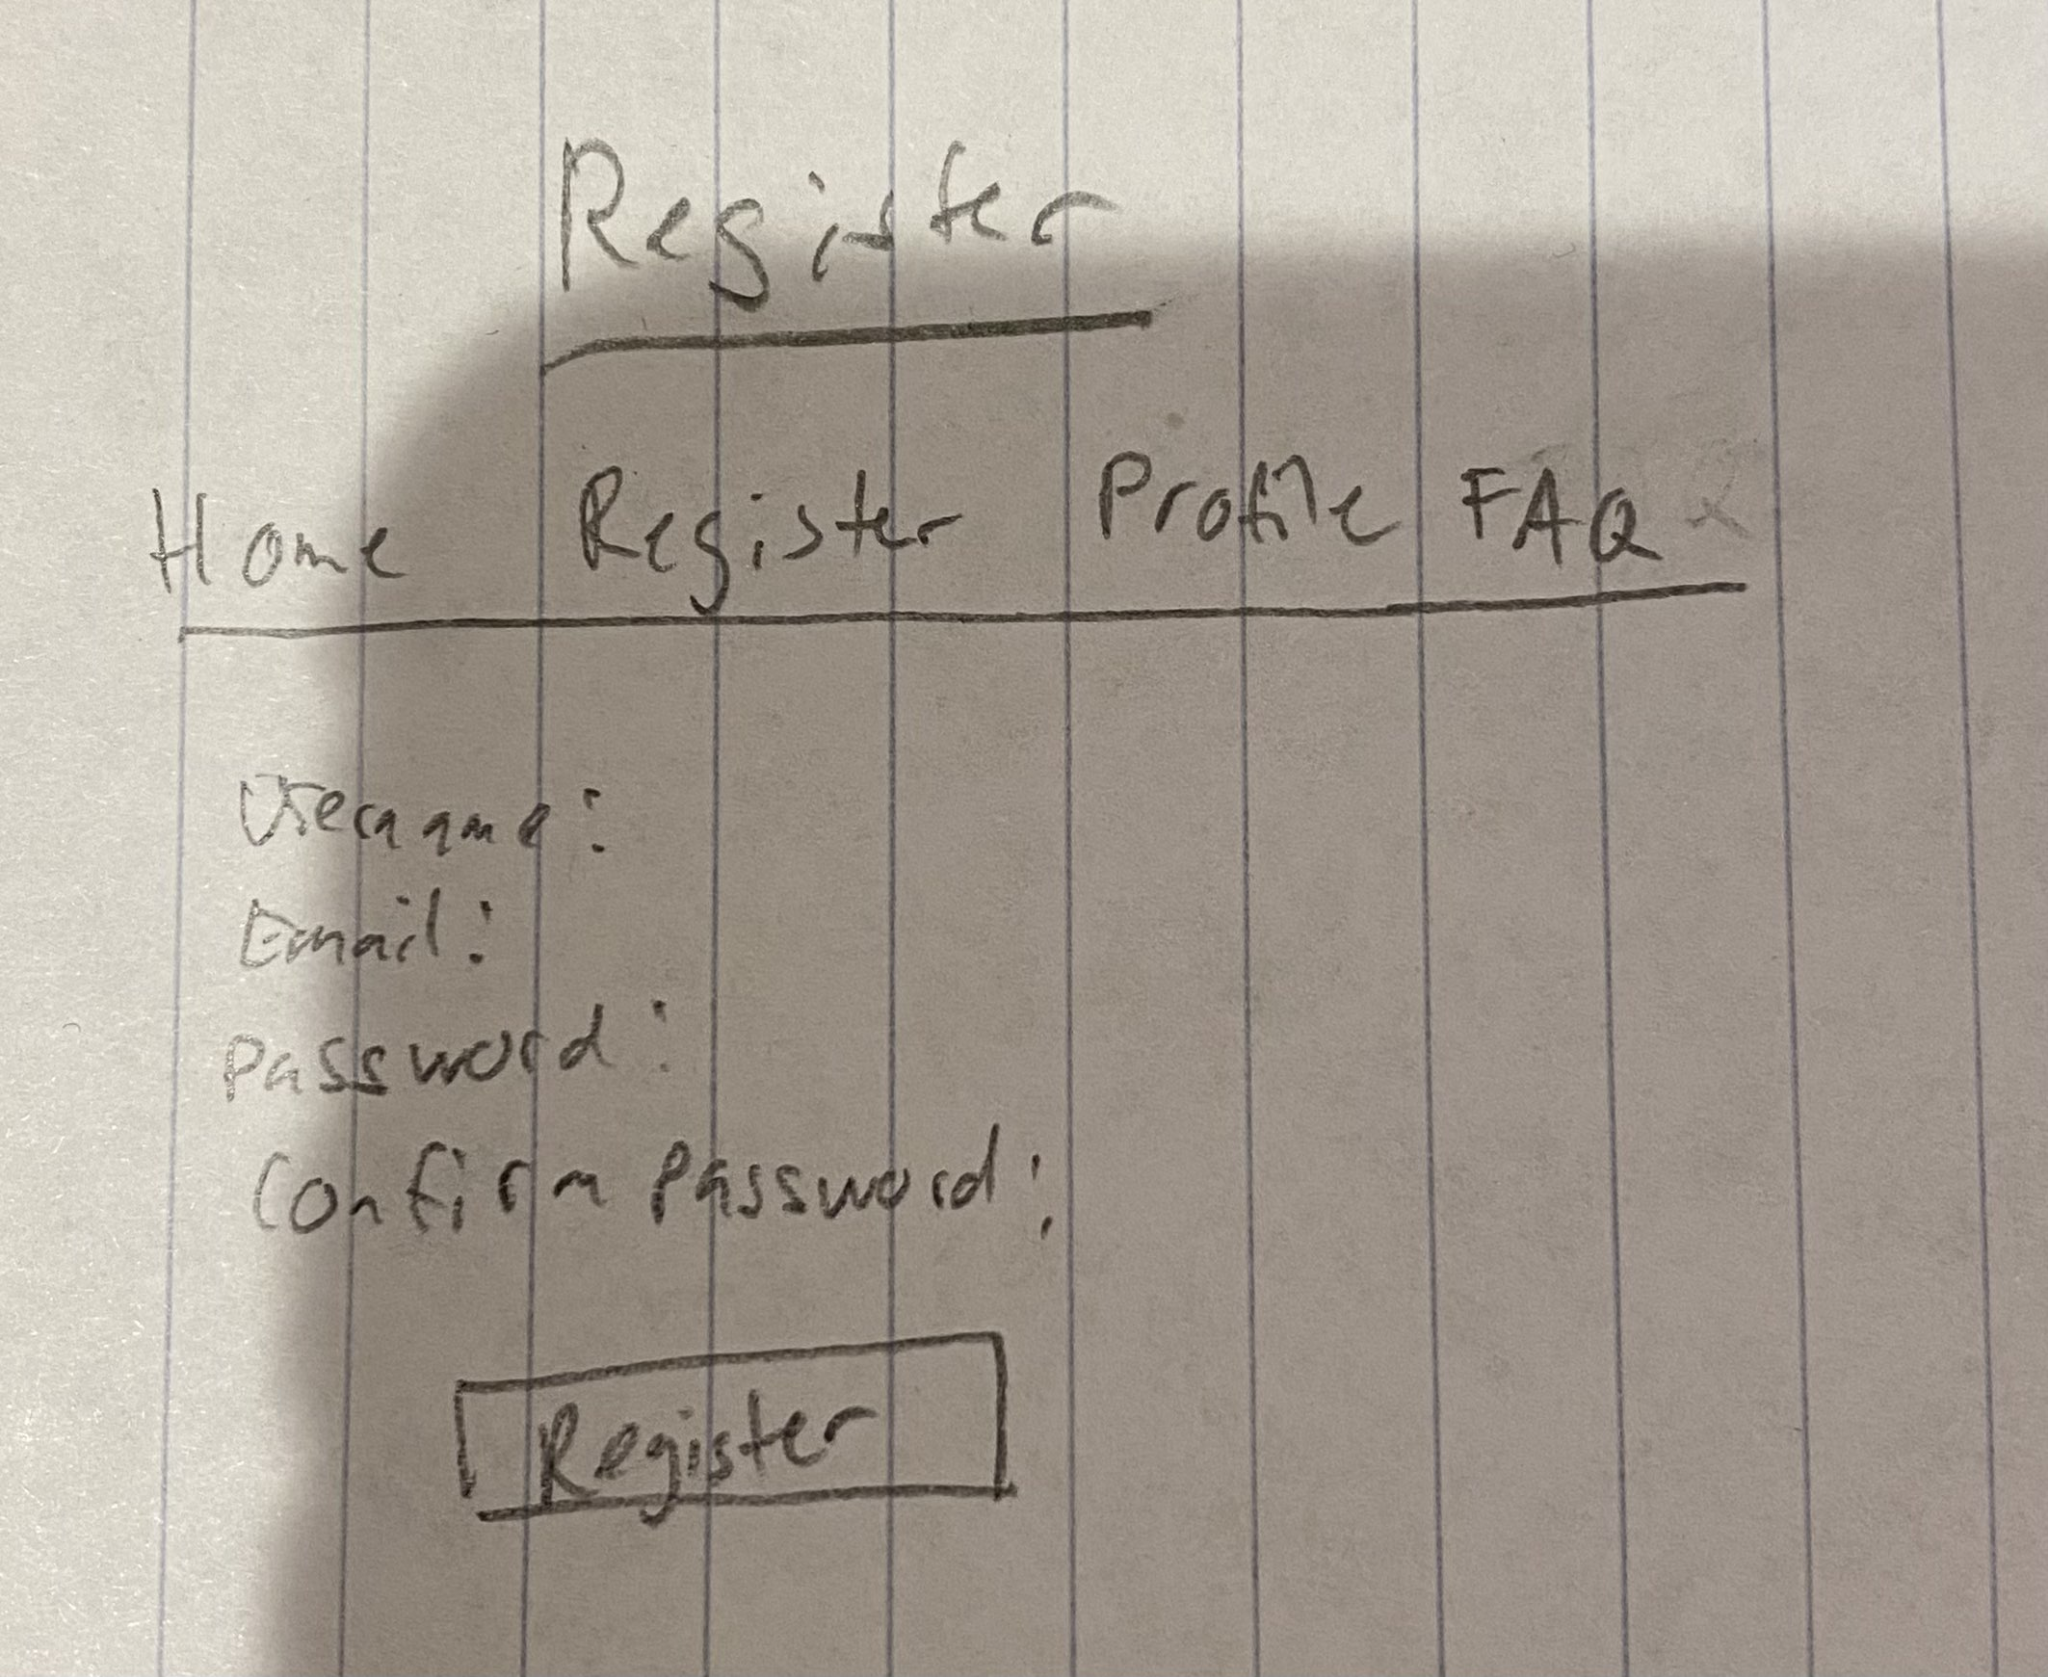 Register
Home Register Profile FAQ
Username:
Email:
Password:
Confirm Password:
Register